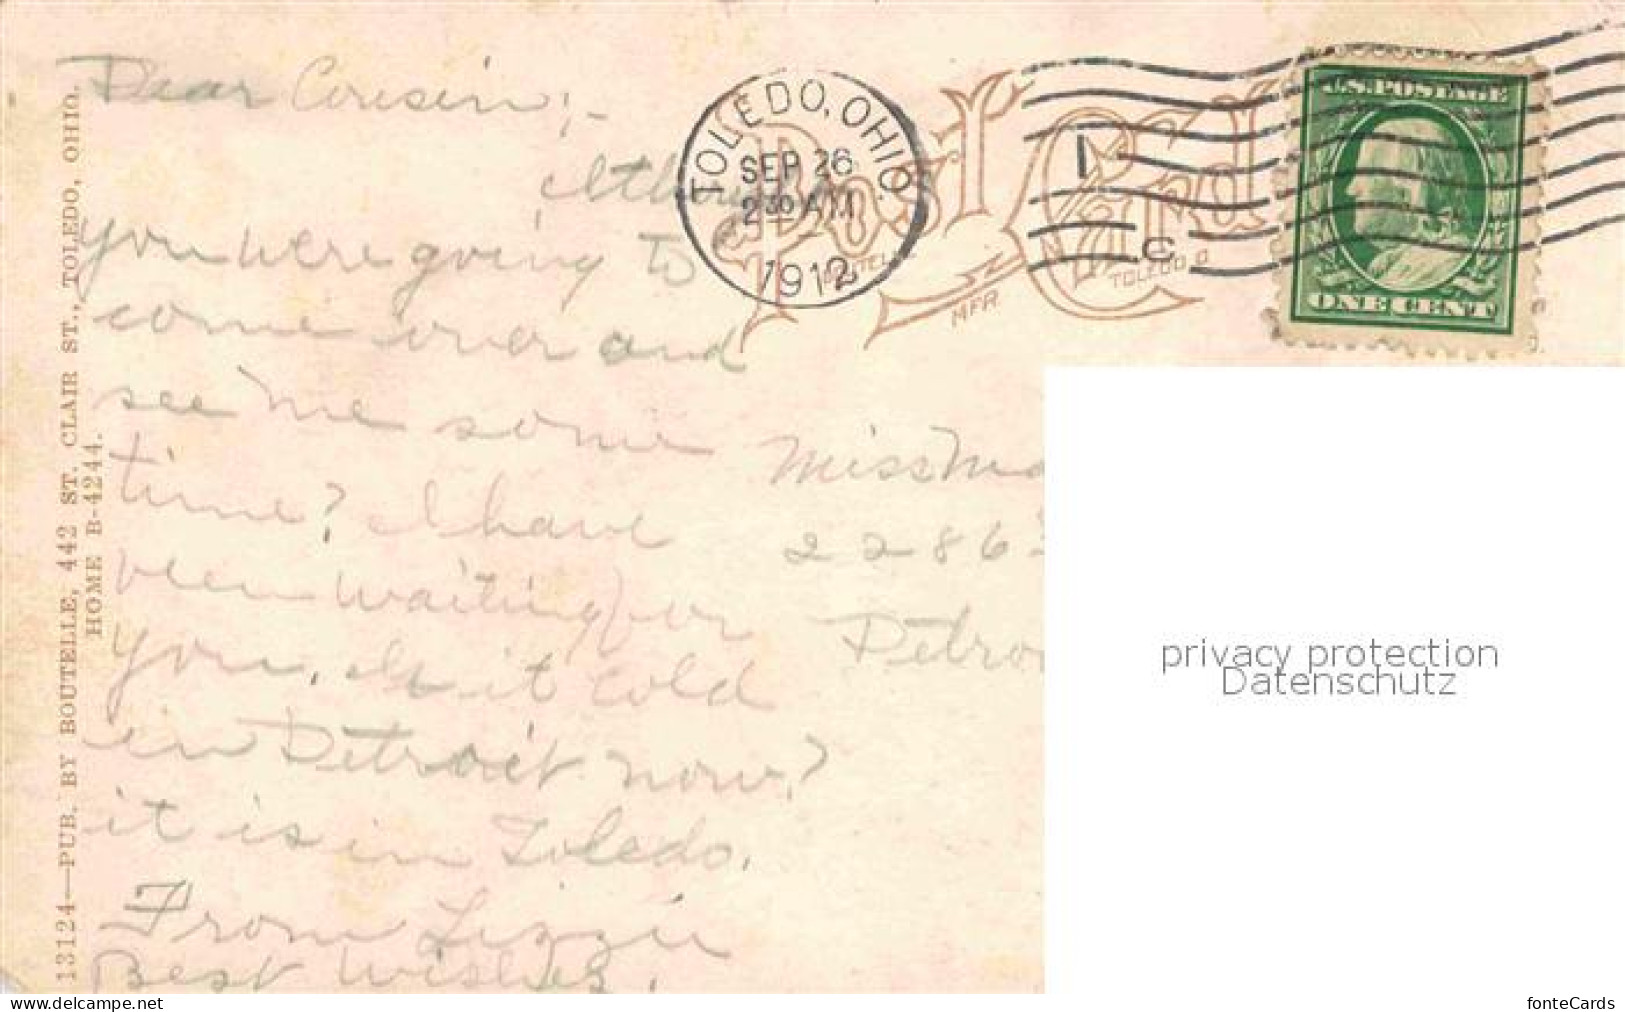 Dear Cousin:-
I thou
you were going to
come over and
see me some
time? I have
been waiting for
you. Is it cold
in Detroit now?
it is in Toledo.
From Lizzie
Best Wishes.
Miss Ma
2286
Detroi
13124—PUB. BY BOUTELLE, 442 ST. CLAIR ST., TOLEDO, OHIO.
HOME B-4244.
Post Card
MFR.
TOLEDO O.
TOLEDO, OHIO.
SEP 26
2 30 AM
1912
1
C
U.S. POSTAGE
ONE CENT
privacy protection
Datenschutz
www.delcampe.net
fonteCards